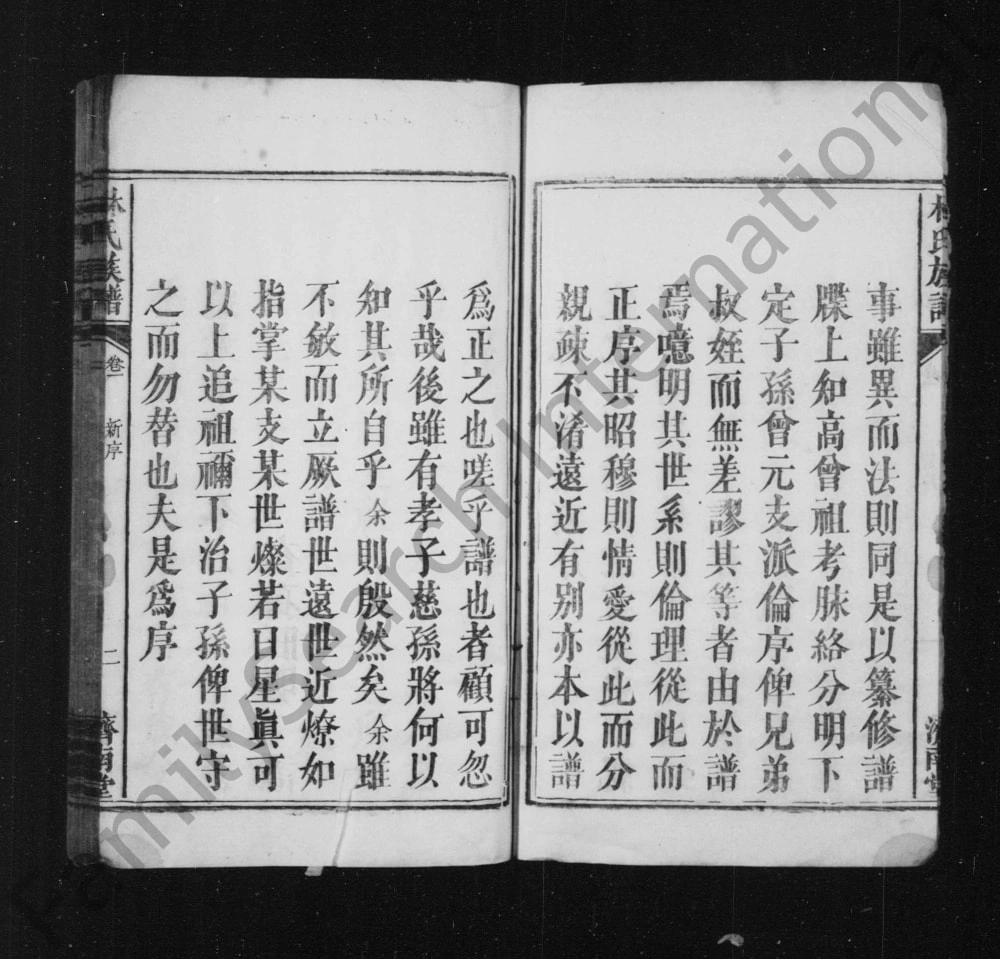 林氏族譜
濟南堂
事雖異而法則同是以纂修譜
牒上知高曾祖考脉絡分明下
定子孫曾元支派倫序俾兄弟
叔姪而無差謬其等者由於譜
焉噫明其世系則倫理從此而
正序其昭穆則情愛從此而分
親疎不淆遠近有别亦本以譜
爲正之也嗟乎譜也者顧可忽
乎哉後雖有孝子慈孫將何以
知其所自乎余則殷然矣余雖
不敏而立厥譜世遠世近燎如
指掌某支某世燦若日星眞可
以上追祖禰下治子孫俾世守
之而勿替也夫是爲序
林氏族譜
卷一
新序
二
濟南堂
familysearch International